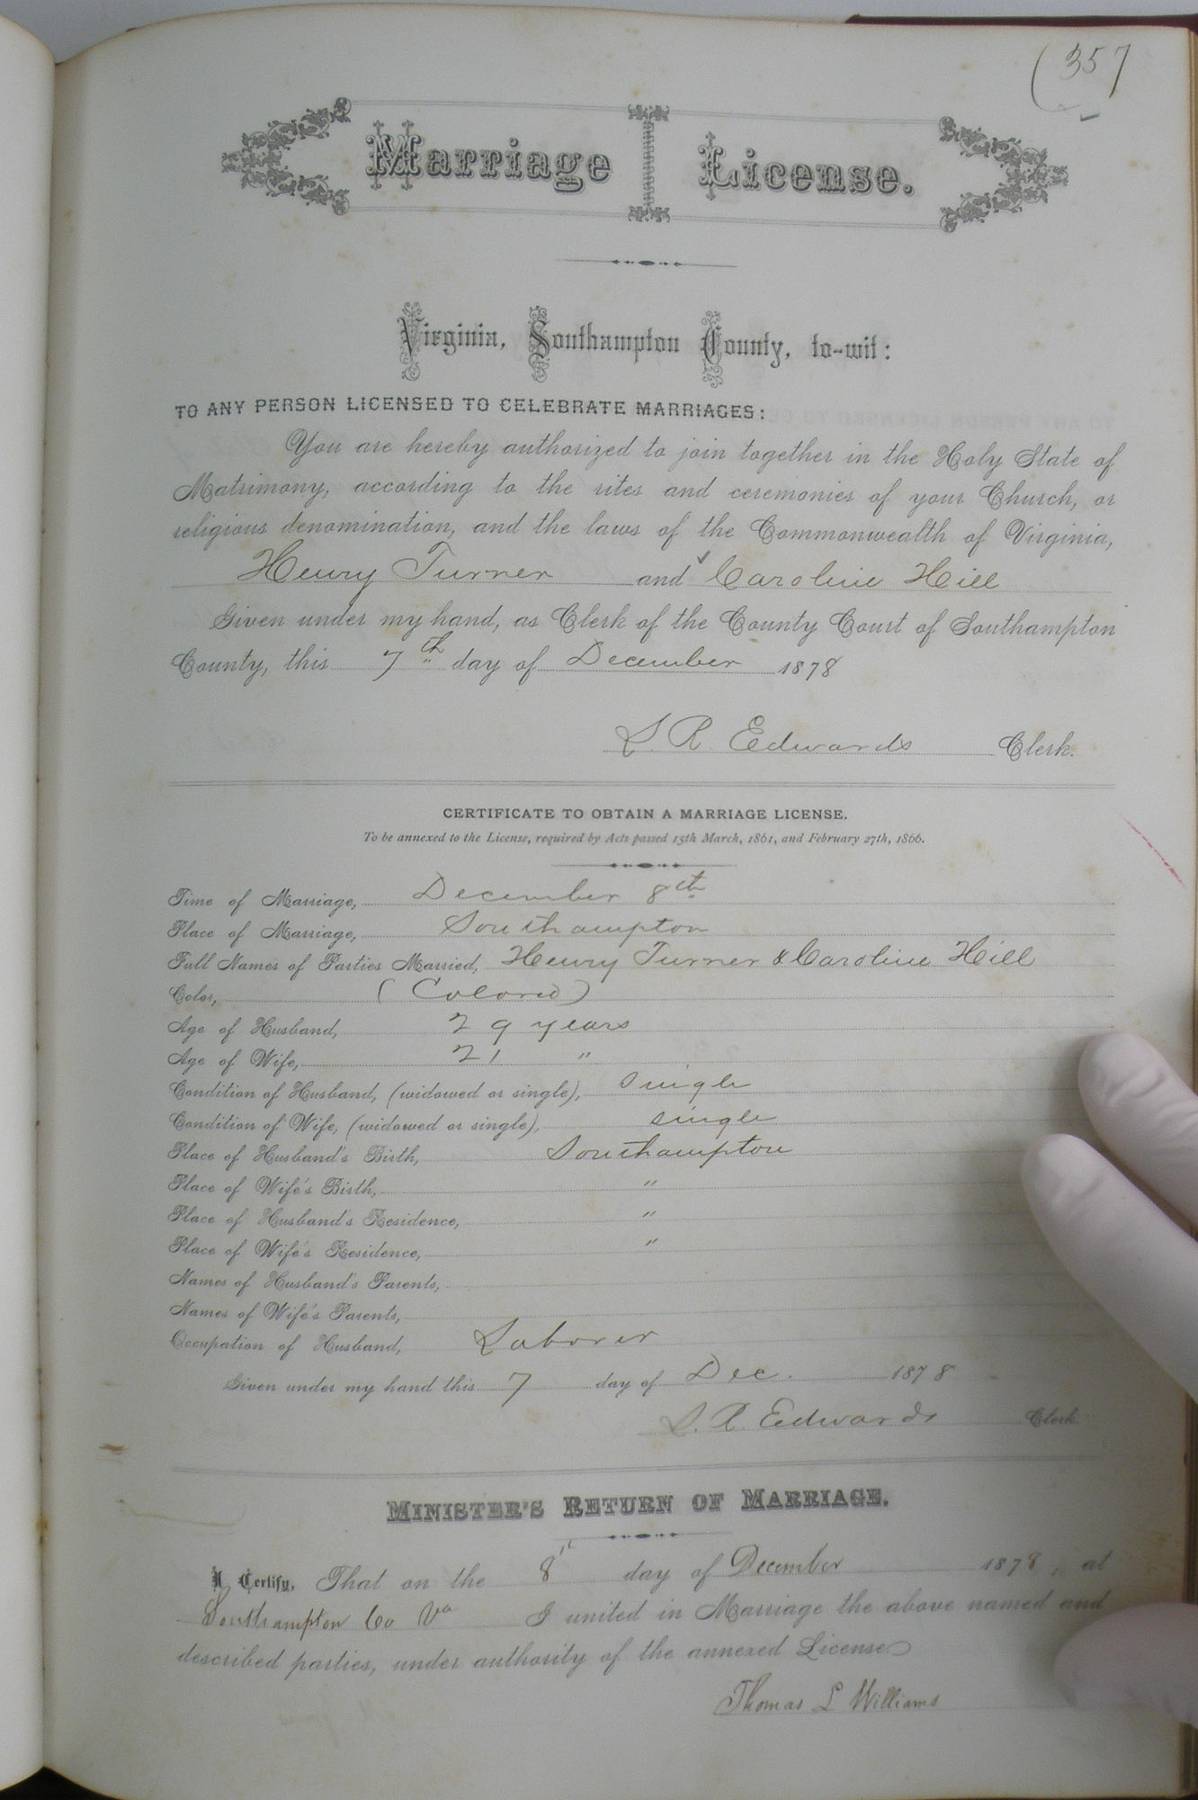 (357
Marriage License.
Virginia, Southampton County, to-wit:
TO ANY PERSON LICENSED TO CELEBRATE MARRIAGES:
You are hereby authorized to join together in the Holy State of
Matrimony, according to the rites and ceremonies of your Church, or
religious denomination, and the laws of the Commonwealth of Virginia,
Henry Turner and Caroline Hill
Given under my hand, as Clerk of the County Court of Southampton
County, this 7th day of December 1878
L. R. Edwards Clerk.
CERTIFICATE TO OBTAIN A MARRIAGE LICENSE.
To be annexed to the License, required by Acts passed 15th March, 1861, and February 27th, 1866.
Time of Marriage, December 8th
Place of Marriage, Southampton
Full Names of Parties Married, Henry Turner & Caroline Hill
Color, (Colored)
Age of Husband, 29 years
Age of Wife, 21 "
Condition of Husband, (widowed or single), single
Condition of Wife, (widowed or single), single
Place of Husband's Birth, Southampton
Place of Wife's Birth, "
Place of Husband's Residence, "
Place of Wife's Residence, "
Names of Husband's Parents,
Names of Wife's Parents,
Occupation of Husband, Laborer
Given under my hand this 7 day of Dec. 1878
L. R. Edwards Clerk
MINISTER'S RETURN OF MARRIAGE.
I Certify, That on the 8th day of December 1878, at
Southampton Co Va I united in Marriage the above named and
described parties, under authority of the annexed License
Thomas L Williams